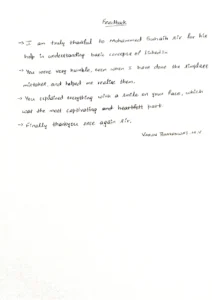 Feedback
→ I am truly thankful to Muhammed Sir for his
help in understanding basic concepts of
→ You were very humble, even when I have done the simplest
mistakes and helped me realise them.
→ You explained everything with a smile on your face, which
was the most captivating and heartfelt part.
→ Finally thankyou once again sir.